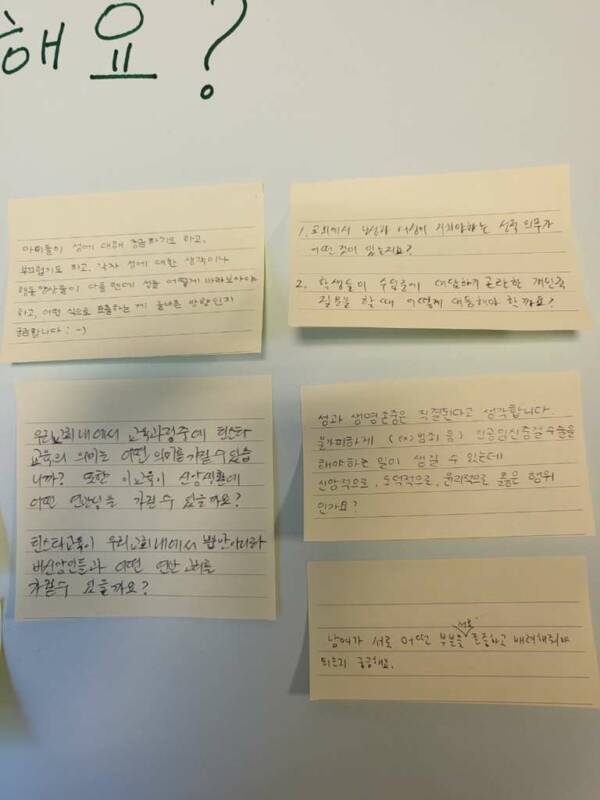 해요?
아이들이 성에 대해 궁금하기도 하고,
부끄럽기도 하고, 각자 성에 대한 생각이나
행동양산들이 다를텐데 성을 어떻게 바라보아야
하고, 어떤 식으로 표출하는게 올바른 방향인지
궁금합니다 :-)
1. 교회에서 남성과 여성이 지켜야하는 성적 의무가
어떤것이 있는지요?
2. 학생들이 수업중에 대답하기 곤란한 개인적
질문을 할때 어떻게 대응해야 할까요?
우리교회내에서 교육과정중에 틴스타
교육의 의미는 어떤 의미를 가질 수 있습
니까? 또한 이교육이 신앙생활에
어떤 연관성을 가질 수 있을까요?
틴스타교육이 우리교회내에서 뿐만아니라
비신앙인들과 어떤 연관 고리를
가질수 있을까요?
성과 생명존중은 직결된다고 생각합니다.
불가피하게 (ex) 범죄 등) 인공임신중절수술을
해야하는 일이 생길 수 있는데
신앙적으로, 도덕적으로, 윤리적으로 옳은 행위
인가요?
남여가 서로 어떤 부분을 서로 존중하고 배려해줘야
되는지 궁금해요.